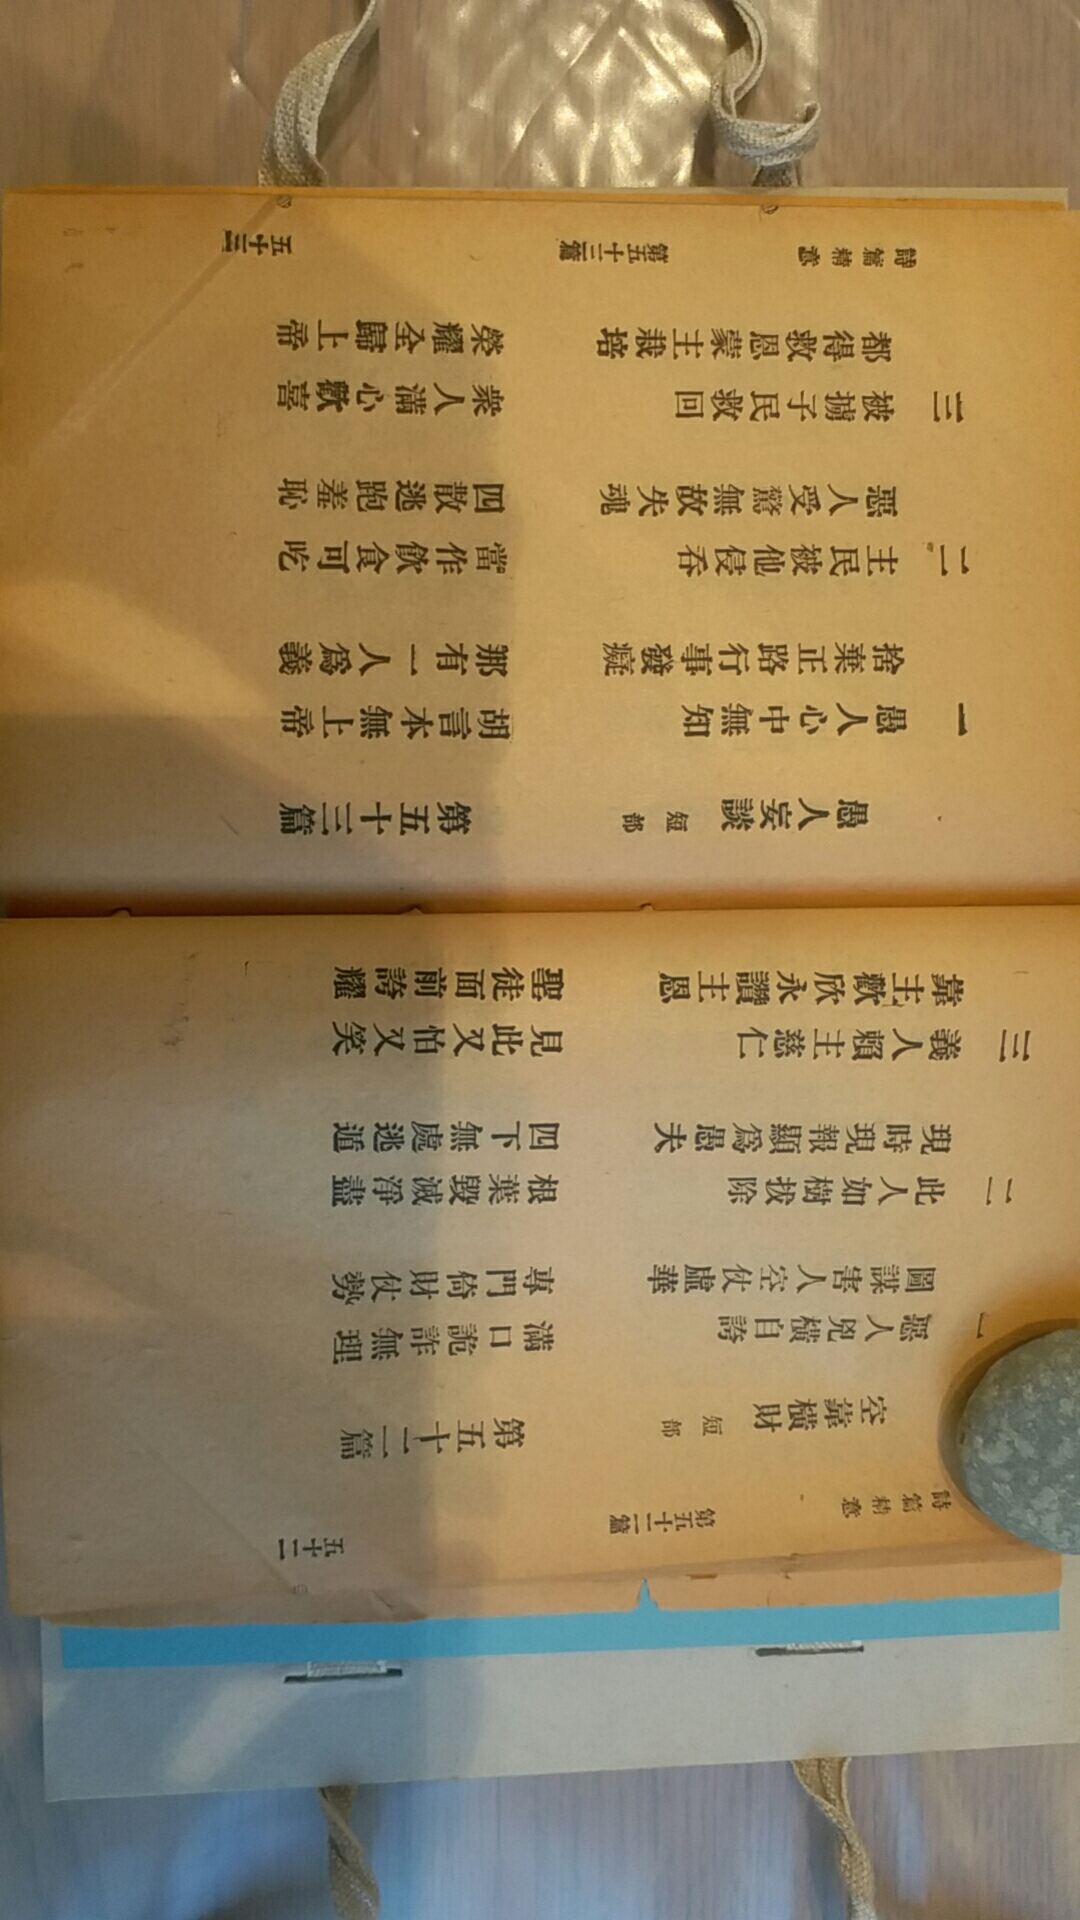 詩篇精意 第五十二篇 五十二
空靠橫財 短部 第五十二篇
一 惡人兇橫自誇 滿口詭詐無理
圖謀害人空仗虛華 專門倚財仗勢
二 此人如樹拔除 根葉毀滅淨盡
現時現報顯爲愚夫 四下無處逃遁
三 義人賴主慈仁 見此又怕又笑
靠主歡欣永讚主恩 聖徒面前誇耀
愚人妄談 短部 第五十三篇
一 愚人心中無知 胡言本無上帝
捨棄正路行事發癡 那有一人爲義
二 主民被他侵吞 當作飲食可吃
惡人受驚無故失魂 四散逃跑羞恥
三 被擄子民救回 衆人滿心歡喜
都得救恩蒙主栽培 榮耀全歸上帝
詩篇精意 第五十三篇 五十三